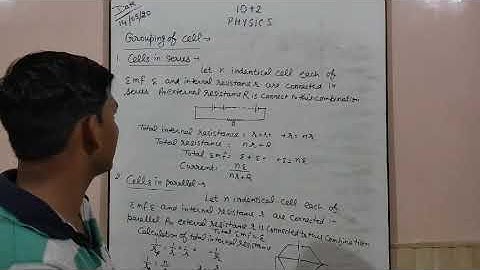 Date
14/05/20
10+2
PHYSICS
Grouping of cell →
1. Cells in series →
Let n indentical cell each of
Emf. ε and internal resistance r are connected in
series An external resistance R is connect to this combination
Total internal resistance = r+r+ +r = nr
Total resistance = nr+R
Total Emf = ε+ε+ +ε = nε
Current = nε
nr+R
2. Cells in parallel →
Let n indentical cell each of
Emf. ε and internal resistance r are connected in
parallel An external resistance R is connected to this combination
Total Emf = ε
Calculation of total internal resistance